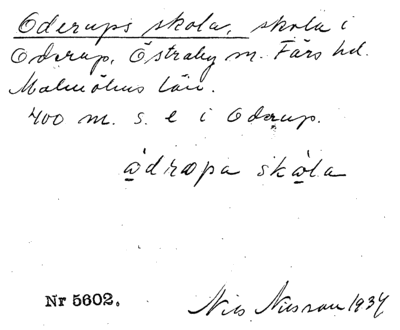 Oderups skola, skola i
Oderup, Östraby sn. Färs hd.
Malmöhus län.
400 m. s. e i Oderup.
àdrapa skàla
Nr 5602.
Nils Nilsson 1934